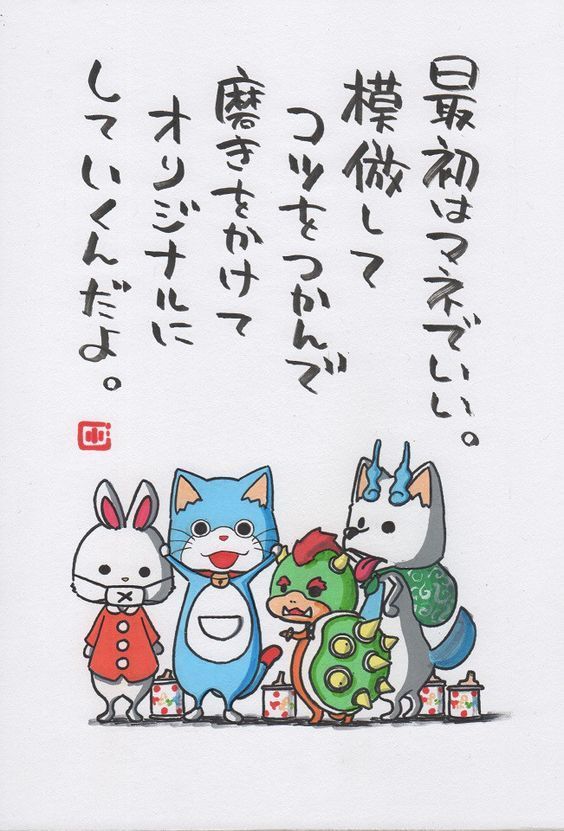 最初はマネでいい。
模倣して
コツをつかんで
磨きをかけて
オリジナルに
していくんだよ。